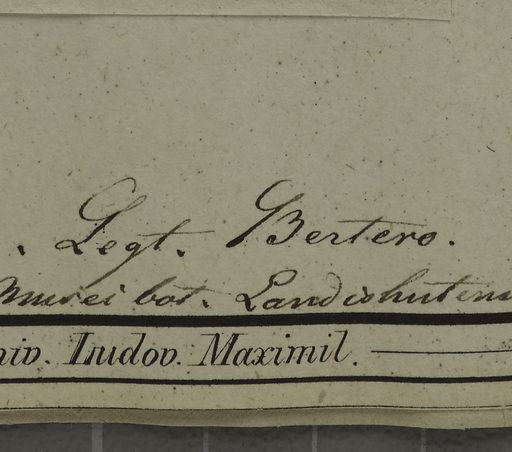 . Legt. Bertero.
Musei bot. Landishutens
niv. Ludov. Maximil.